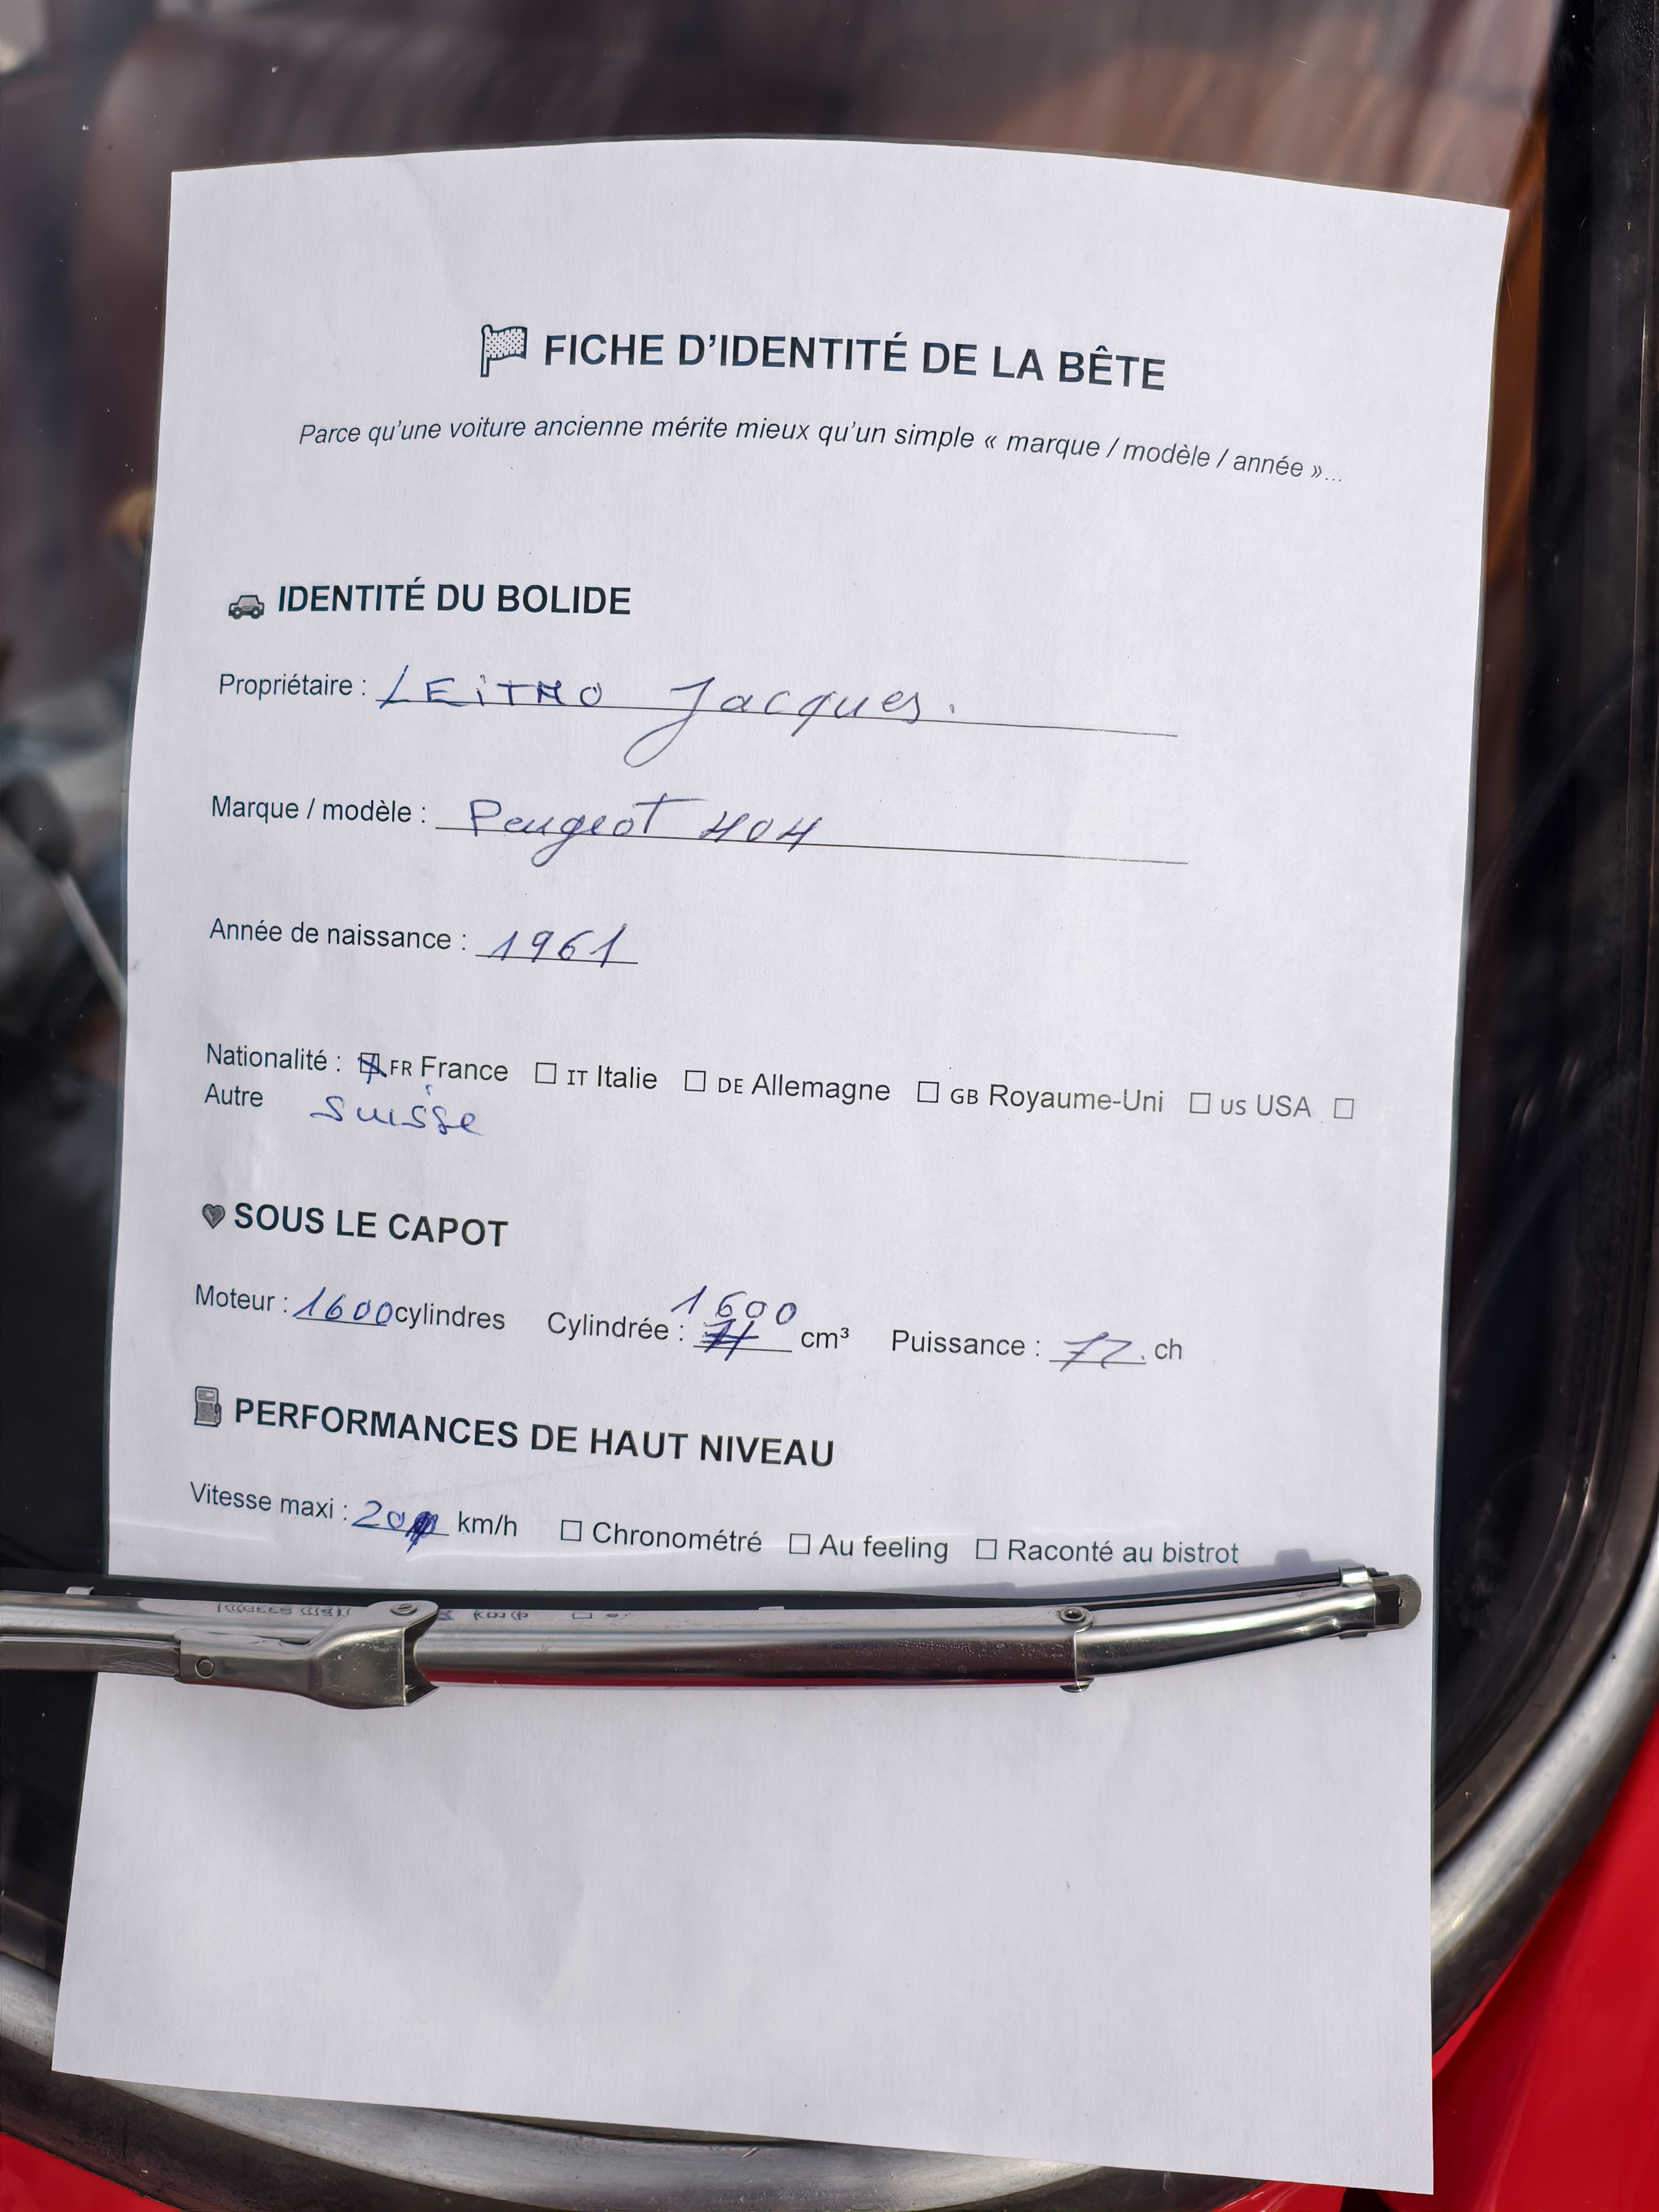 FICHE D'IDENTITÉ DE LA BÊTE
Parce qu'une voiture ancienne mérite mieux qu'un simple « marque / modèle / année »...
IDENTITÉ DU BOLIDE
Propriétaire : Jacques.
Marque / modèle : Peugeot 404
Année de naissance : 1961
Nationalité : ☒ FR France ☐ IT Italie ☐ DE Allemagne ☐ GB Royaume-Uni ☐ US USA ☐
Autre Suisse
SOUS LE CAPOT
Moteur : 1600 cylindres Cylindrée : 1600 cm³ Puissance : 72. ch
PERFORMANCES DE HAUT NIVEAU
Vitesse maxi : km/h ☐ Chronométré ☐ Au feeling ☐ Raconté au bistrot